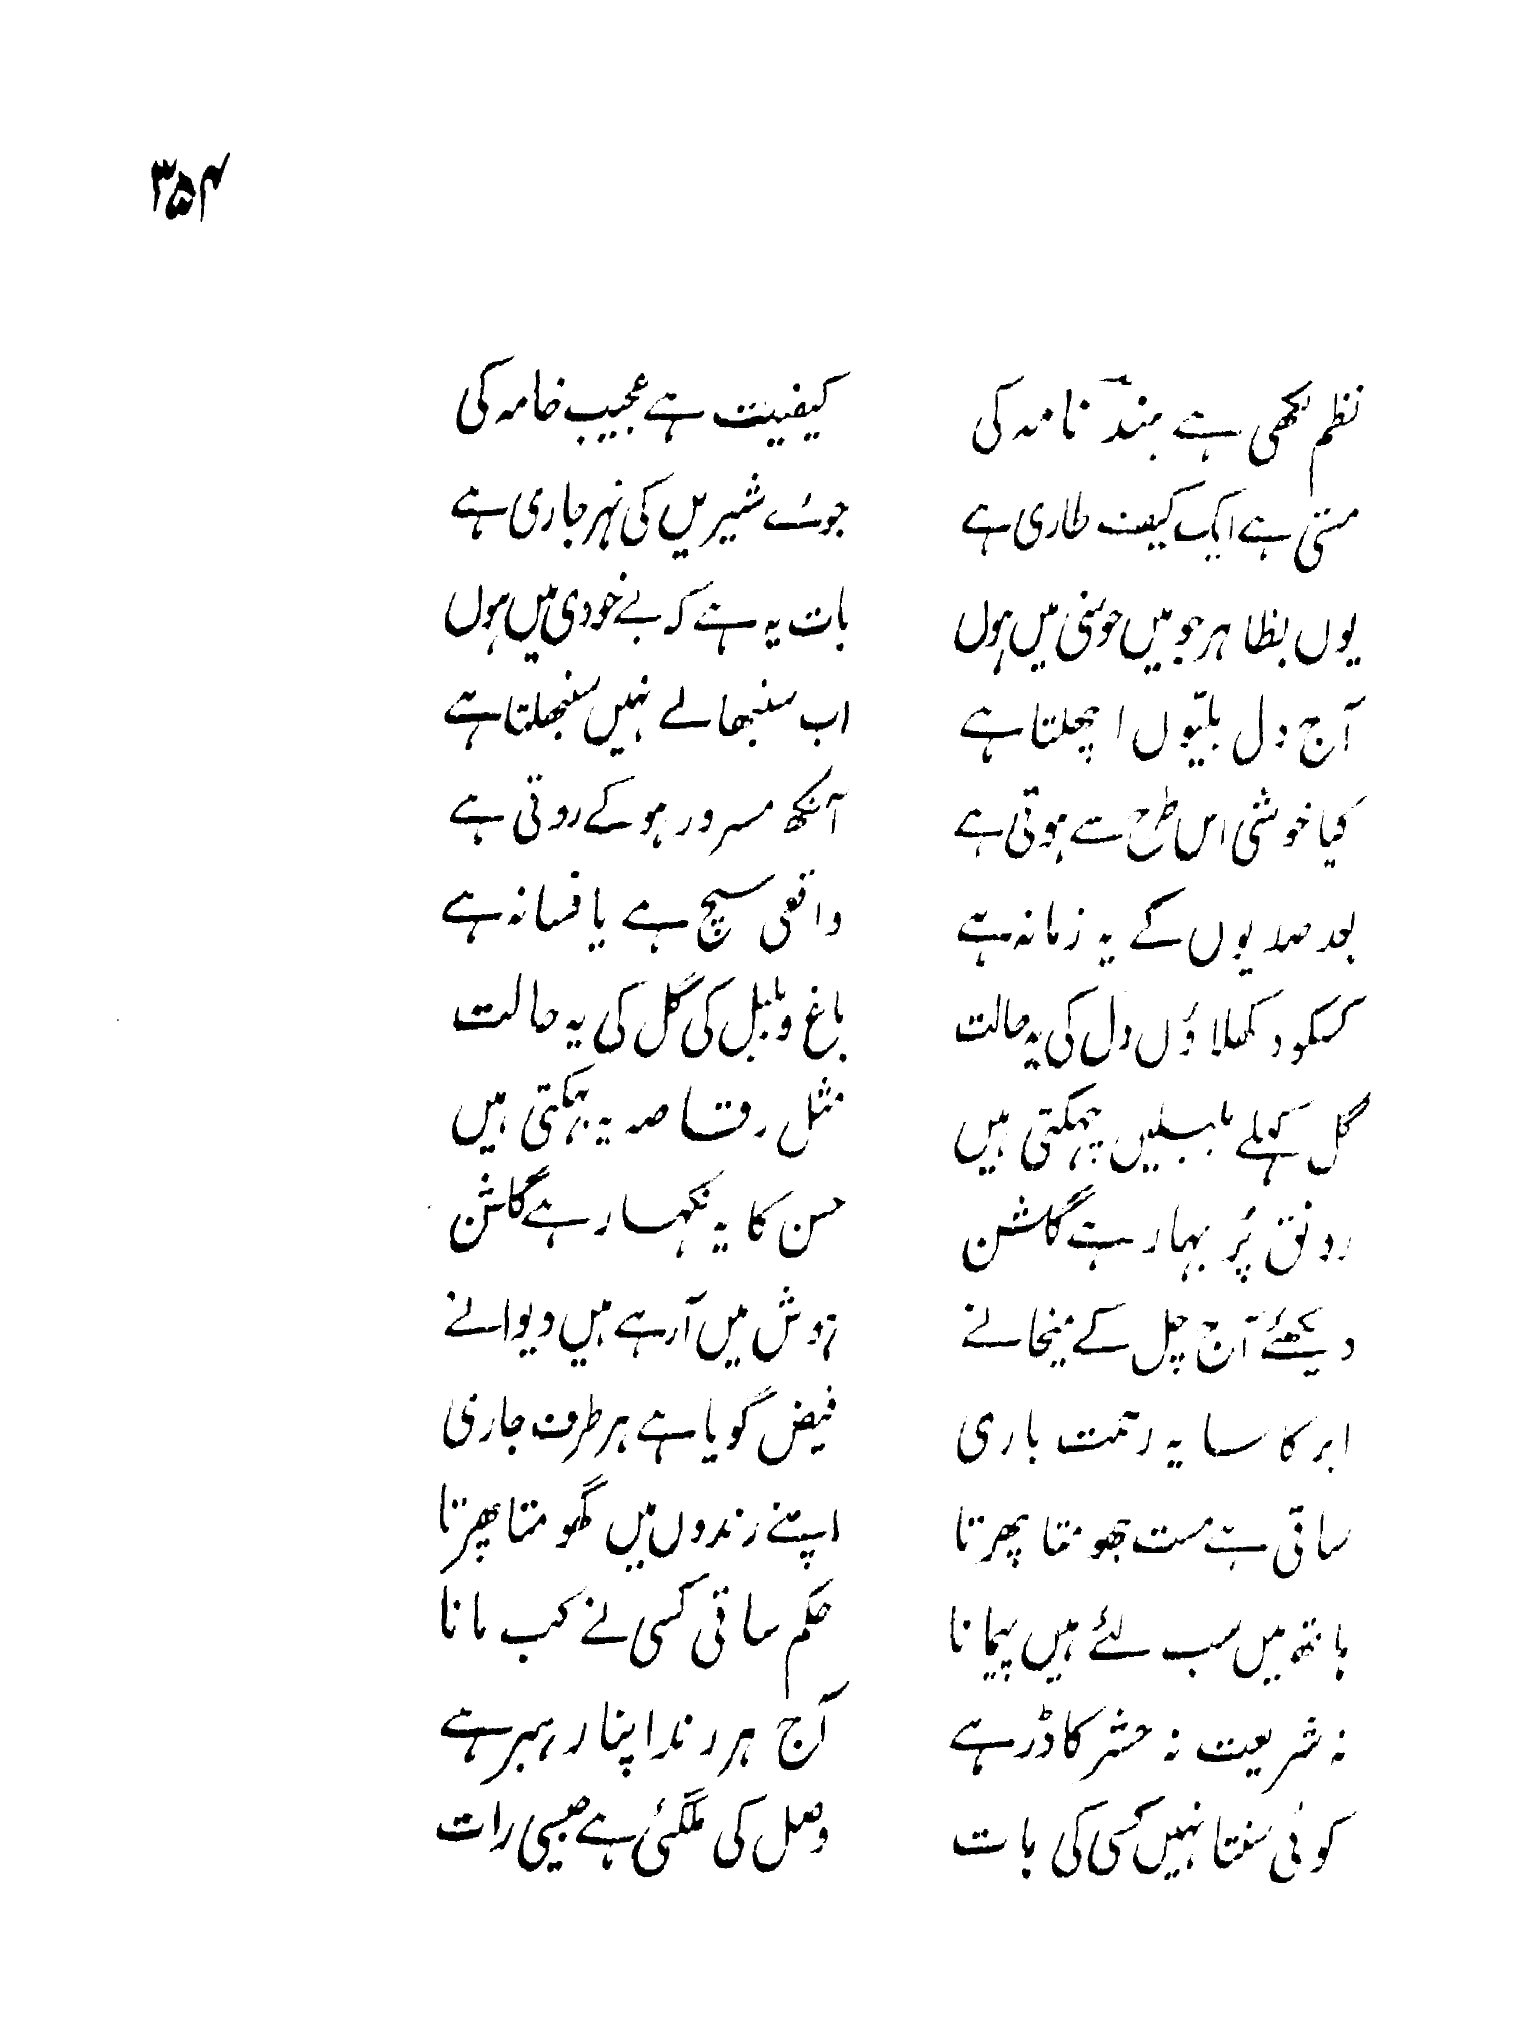 ۳۵۴
نظم لکھی ہے بندؔ نامہ کی
کیفیت ہے عجیب خامہ کی
مستی ہے ایک کیف طاری ہے
جوئے شیریں کی نہر جاری ہے
یوں بظاہر جو میں خوشی میں ہوں
بات یہ ہے کہ بے خودی میں ہوں
آج دل بلیّوں اچھلتا ہے
اب سنبھالے نہیں سنبھلتا ہے
کیا خوشی اس طرح سے ہوتی ہے
آنکھ مسرور ہو کے روتی ہے
بعد صدیوں کے یہ زمانہ ہے
واقعی سچ ہے یا فسانہ ہے
کسکو دکھلاؤں دل کی یہ حالت
باغ و بلبل کی گل کی یہ حالت
گل کہلے بلبلیں چہکتی ہیں
مثل رقاصہ یہ بہکتی ہیں
رونق پُر بہار ہے گلشن
حسن کا یہ نکہار ہے گلشن
دیکھئے آج چل کے میخانے
ہوش میں آرہے ہیں دیوانے
ابر کا سایہ رحمت باری
فیض گویا ہے ہر طرف جاری
ساقی ہے مست جھومتا پھرتا
اپنے رندوں میں گھومتا پھرتا
ہاتھ میں سب لئے ہیں پیمانا
حکم ساقی کسی نے کب مانا
نہ شریعت نہ حشر کا ڈر ہے
آج ہر رند اپنا رہبر ہے
کوئی سنتا نہیں کسی کی بات
وصل کی ملگئی ہے جیسی رات